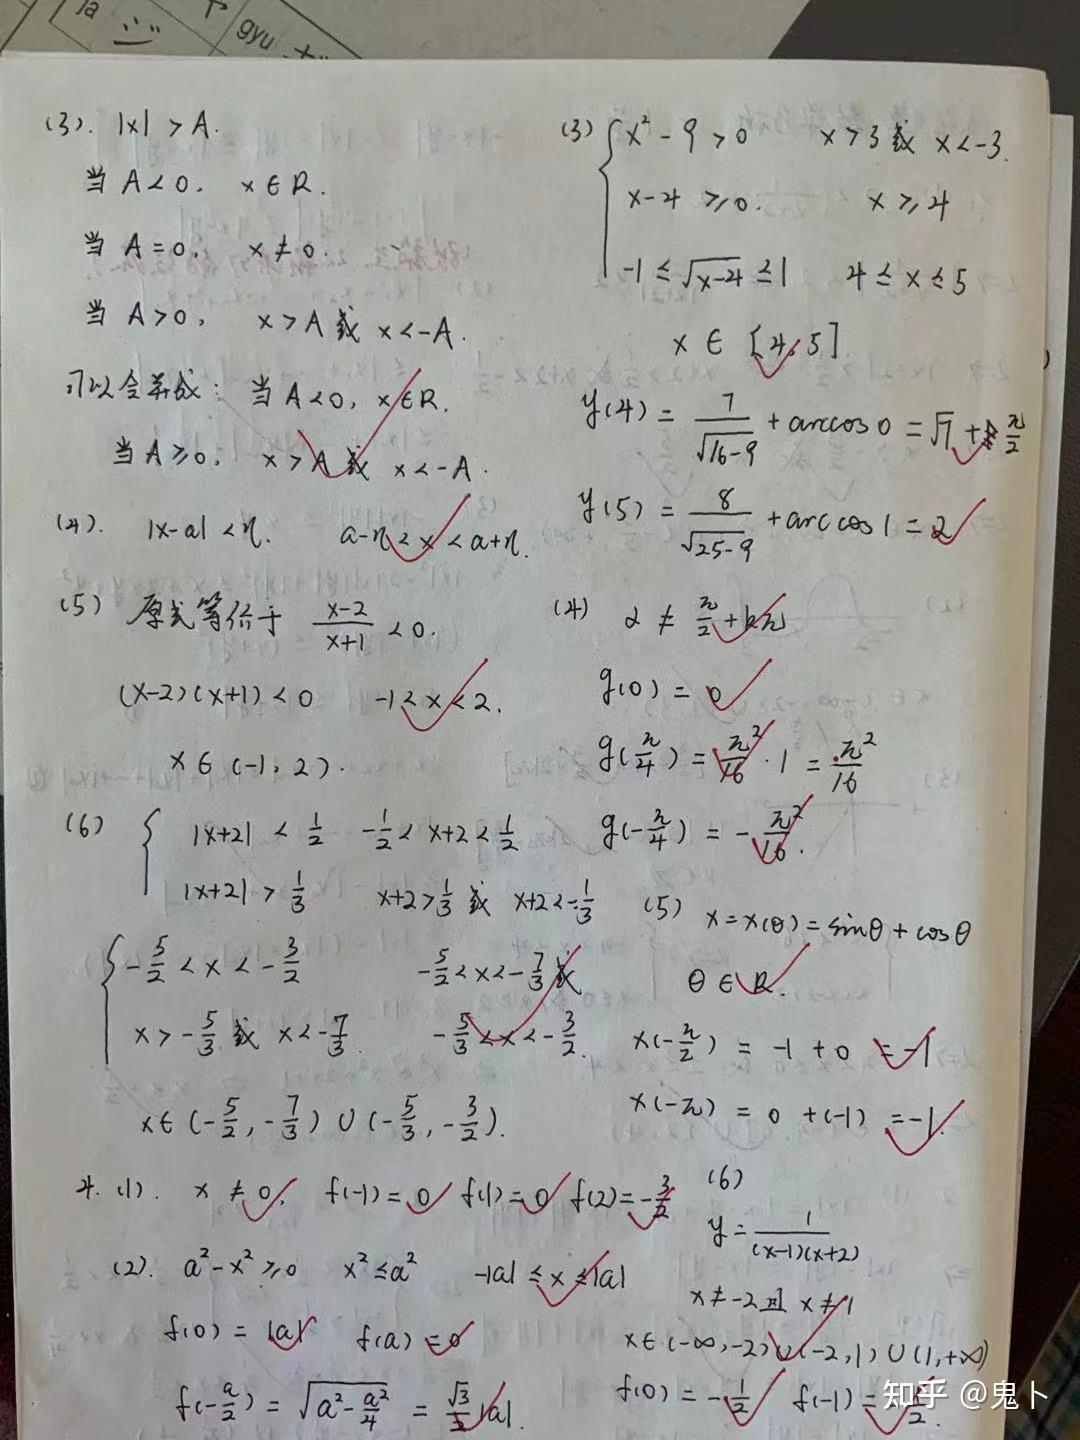 la
gyu
(3). |x| > A.
当 A < 0, x ∈ R.
当 A = 0, x ≠ 0.
当 A > 0, x > A 或 x < -A.
可以合并成: 当 A < 0, x ∈ R.
当 A ≥ 0, x > A 或 x < -A.
(4). |x-a| < η. a-η < x < a+η.
(5) 原式等价于 \frac{x-2}{x+1} < 0.
(x-2)(x+1) < 0 -1 < x < 2.
x ∈ (-1, 2).
(6) { |x+2| < \frac{1}{2} -\frac{1}{2} < x+2 < \frac{1}{2}
|x+2| > \frac{1}{3} x+2 > \frac{1}{3} 或 x+2 < -\frac{1}{3}
{ -\frac{5}{2} < x < -\frac{3}{2} -\frac{5}{2} < x < -\frac{7}{3} 或
x > -\frac{5}{3} 或 x < -\frac{7}{3} -\frac{5}{3} < x < -\frac{3}{2}.
x ∈ (-\frac{5}{2}, -\frac{7}{3}) ∪ (-\frac{5}{3}, -\frac{3}{2}).
4. (1). x ≠ 0. f(-1) = 0 f(1) = 0 f(2) = -\frac{3}{2}
(2). a² - x² ≥ 0 x² ≤ a² -|a| ≤ x ≤ |a|
f(0) = |a| f(a) = 0
f(-\frac{a}{2}) = \sqrt{a² - \frac{a²}{4}} = \frac{\sqrt{3}}{2}|a|.
(3) { x² - 9 > 0 x > 3 或 x < -3.
x-4 ≥ 0. x ≥ 4
-1 ≤ \sqrt{x-4} ≤ 1 4 ≤ x ≤ 5
x ∈ [4, 5].
y(4) = \frac{7}{\sqrt{16-9}} + arccos 0 = √7 + \frac{π}{2}
y(5) = \frac{8}{\sqrt{25-9}} + arccos 1 = 2
(4) α ≠ \frac{π}{2} + kπ
g(0) = 0
g(\frac{π}{4}) = \frac{π²}{16} · 1 = \frac{π²}{16}
g(-\frac{π}{4}) = -\frac{π²}{16}.
(5) x = x(θ) = sinθ + cosθ
θ ∈ R.
x(-\frac{π}{2}) = -1 + 0 = -1
x(-π) = 0 + (-1) = -1.
(6)
y = \frac{1}{(x-1)(x+2)}
x ≠ -2 且 x ≠ 1
x ∈ (-∞, -2) ∪ (-2, 1) ∪ (1, +∞)
f(0) = -\frac{1}{2} f(-1) =
知乎 @鬼卜